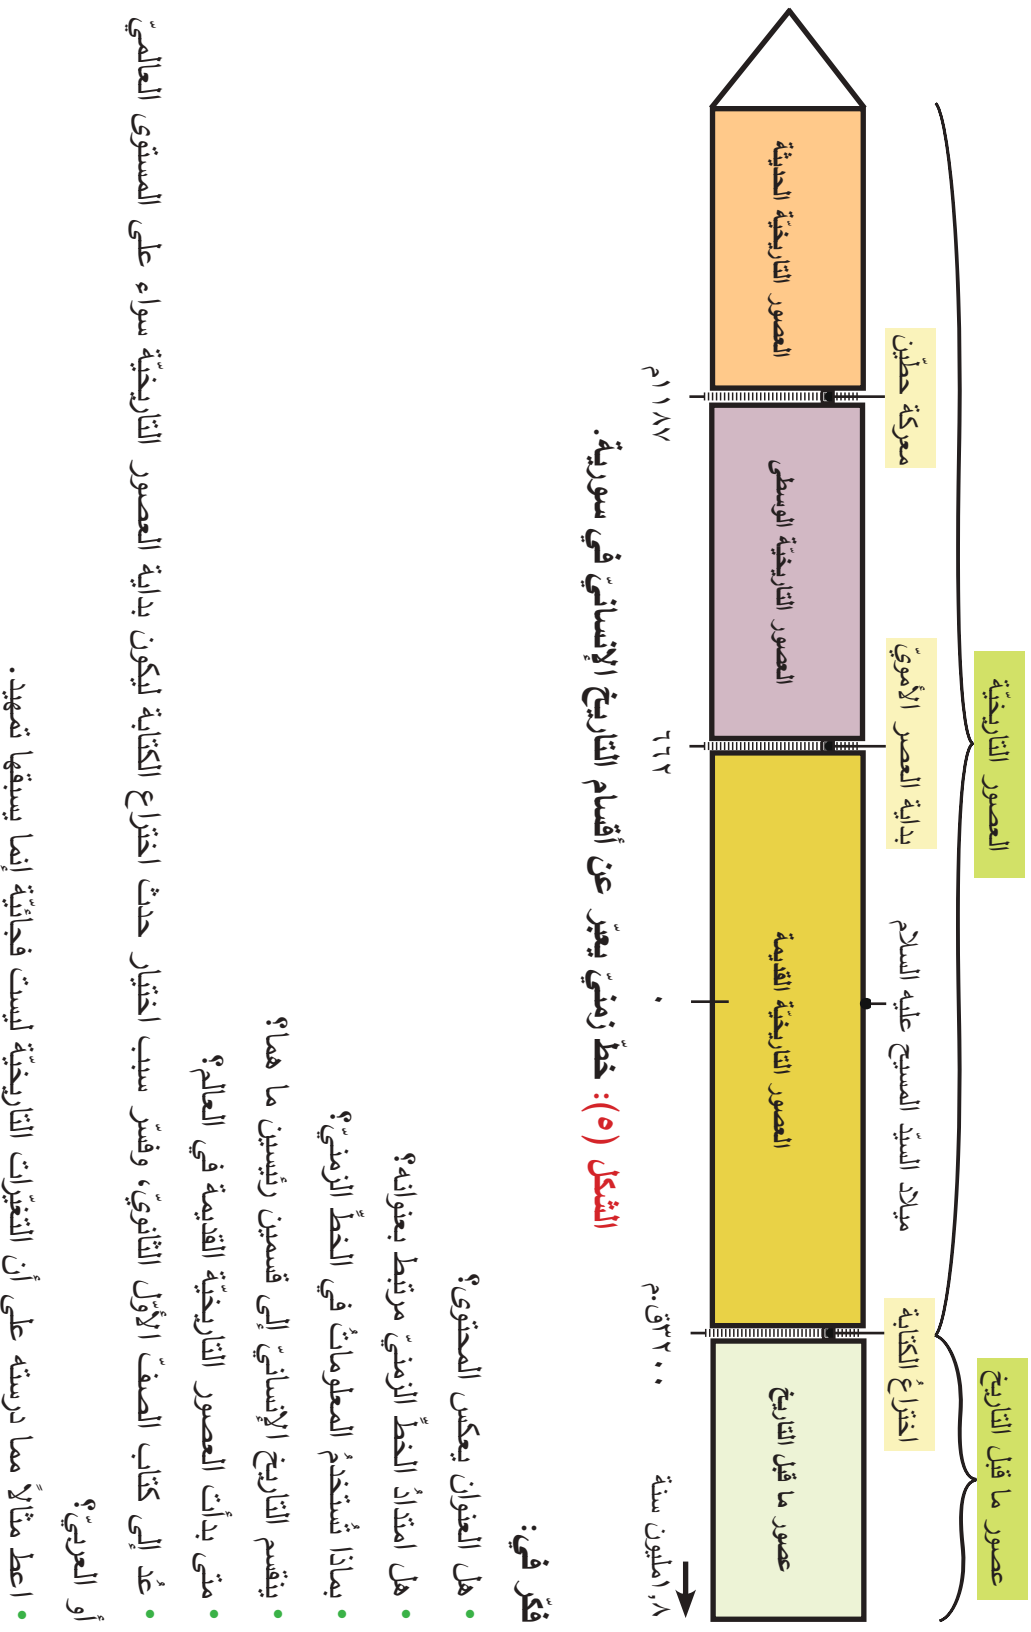 عصور ما قبل التاريخ
العصور التاريخيّة
اختراعُ الكتابة
ميلاد السيّد المسيح عليه السلام
بداية العصر الأمويّ
معركة حطّين
عصور ما قبل التاريخ
العصور التاريخيّة القديمة
العصور التاريخيّة الوسطى
العصور التاريخيّة الحديثة
١,٨مليون سنة
٣٢٠٠ق.م
٠
٦٦٢
١١٨٧م
الشكل (٥): خطّ زمنيّ يعبّر عن أقسام التاريخ الإنسانيّ في سورية.
فكّر في:
• هل العنوان يعكس المحتوى؟
• هل امتدادُ الخطِّ الزمنيّ مرتبط بعنوانه؟
• بماذا تُستخدمُ المعلوماتُ في الخطِّ الزمنيّ؟
• ينقسم التاريخ الإنسانيّ إلى قسمين رئيسين ما هما؟
• متى بدأت العصور التاريخيّة القديمة في العالم؟
• عُد إلى كتاب الصفّ الأوّل الثانويّ، وفسّر سبب اختيار حدث اختراع الكتابة ليكون بداية العصور التاريخيّة سواء على المستوى العالميّ
أو العربيّ؟
• اعط مثالاً مما درسته على أن التغيّرات التاريخيّة ليست فجائيّة إنما يسبقها تمهيد.